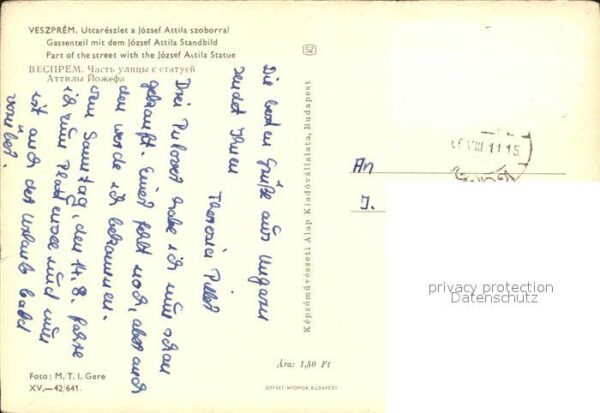 VESZPRÉM. Utcarészlet a József Attila szoborral
Gassenteil mit dem József Attila Standbild
Part of the street with the József Attila Statue
ВЕСПРЕМ. Часть улицы с статуей
Аттилы Йожефа
Die besten Grüße aus Ungarn
sendet Ihnen
Theresia
Drei Pullover habe ich nun schon
gekauft. Einer fehlt noch, aber auch
den werde ich bekommen.
Am Samstag, den 14.8. fahre
ich zum Plattensee und nun
ist auch der Urlaub bald
vorüber.
Képzőművészeti Alap Kiadóvállalata, Budapest
An
J.
11 15
privacy protection
Datenschutz
Foto: M. T. I. Gere
XV.—42/641.
Ára: 1,50 Ft
OFFSET NYOMDA BUDAPEST